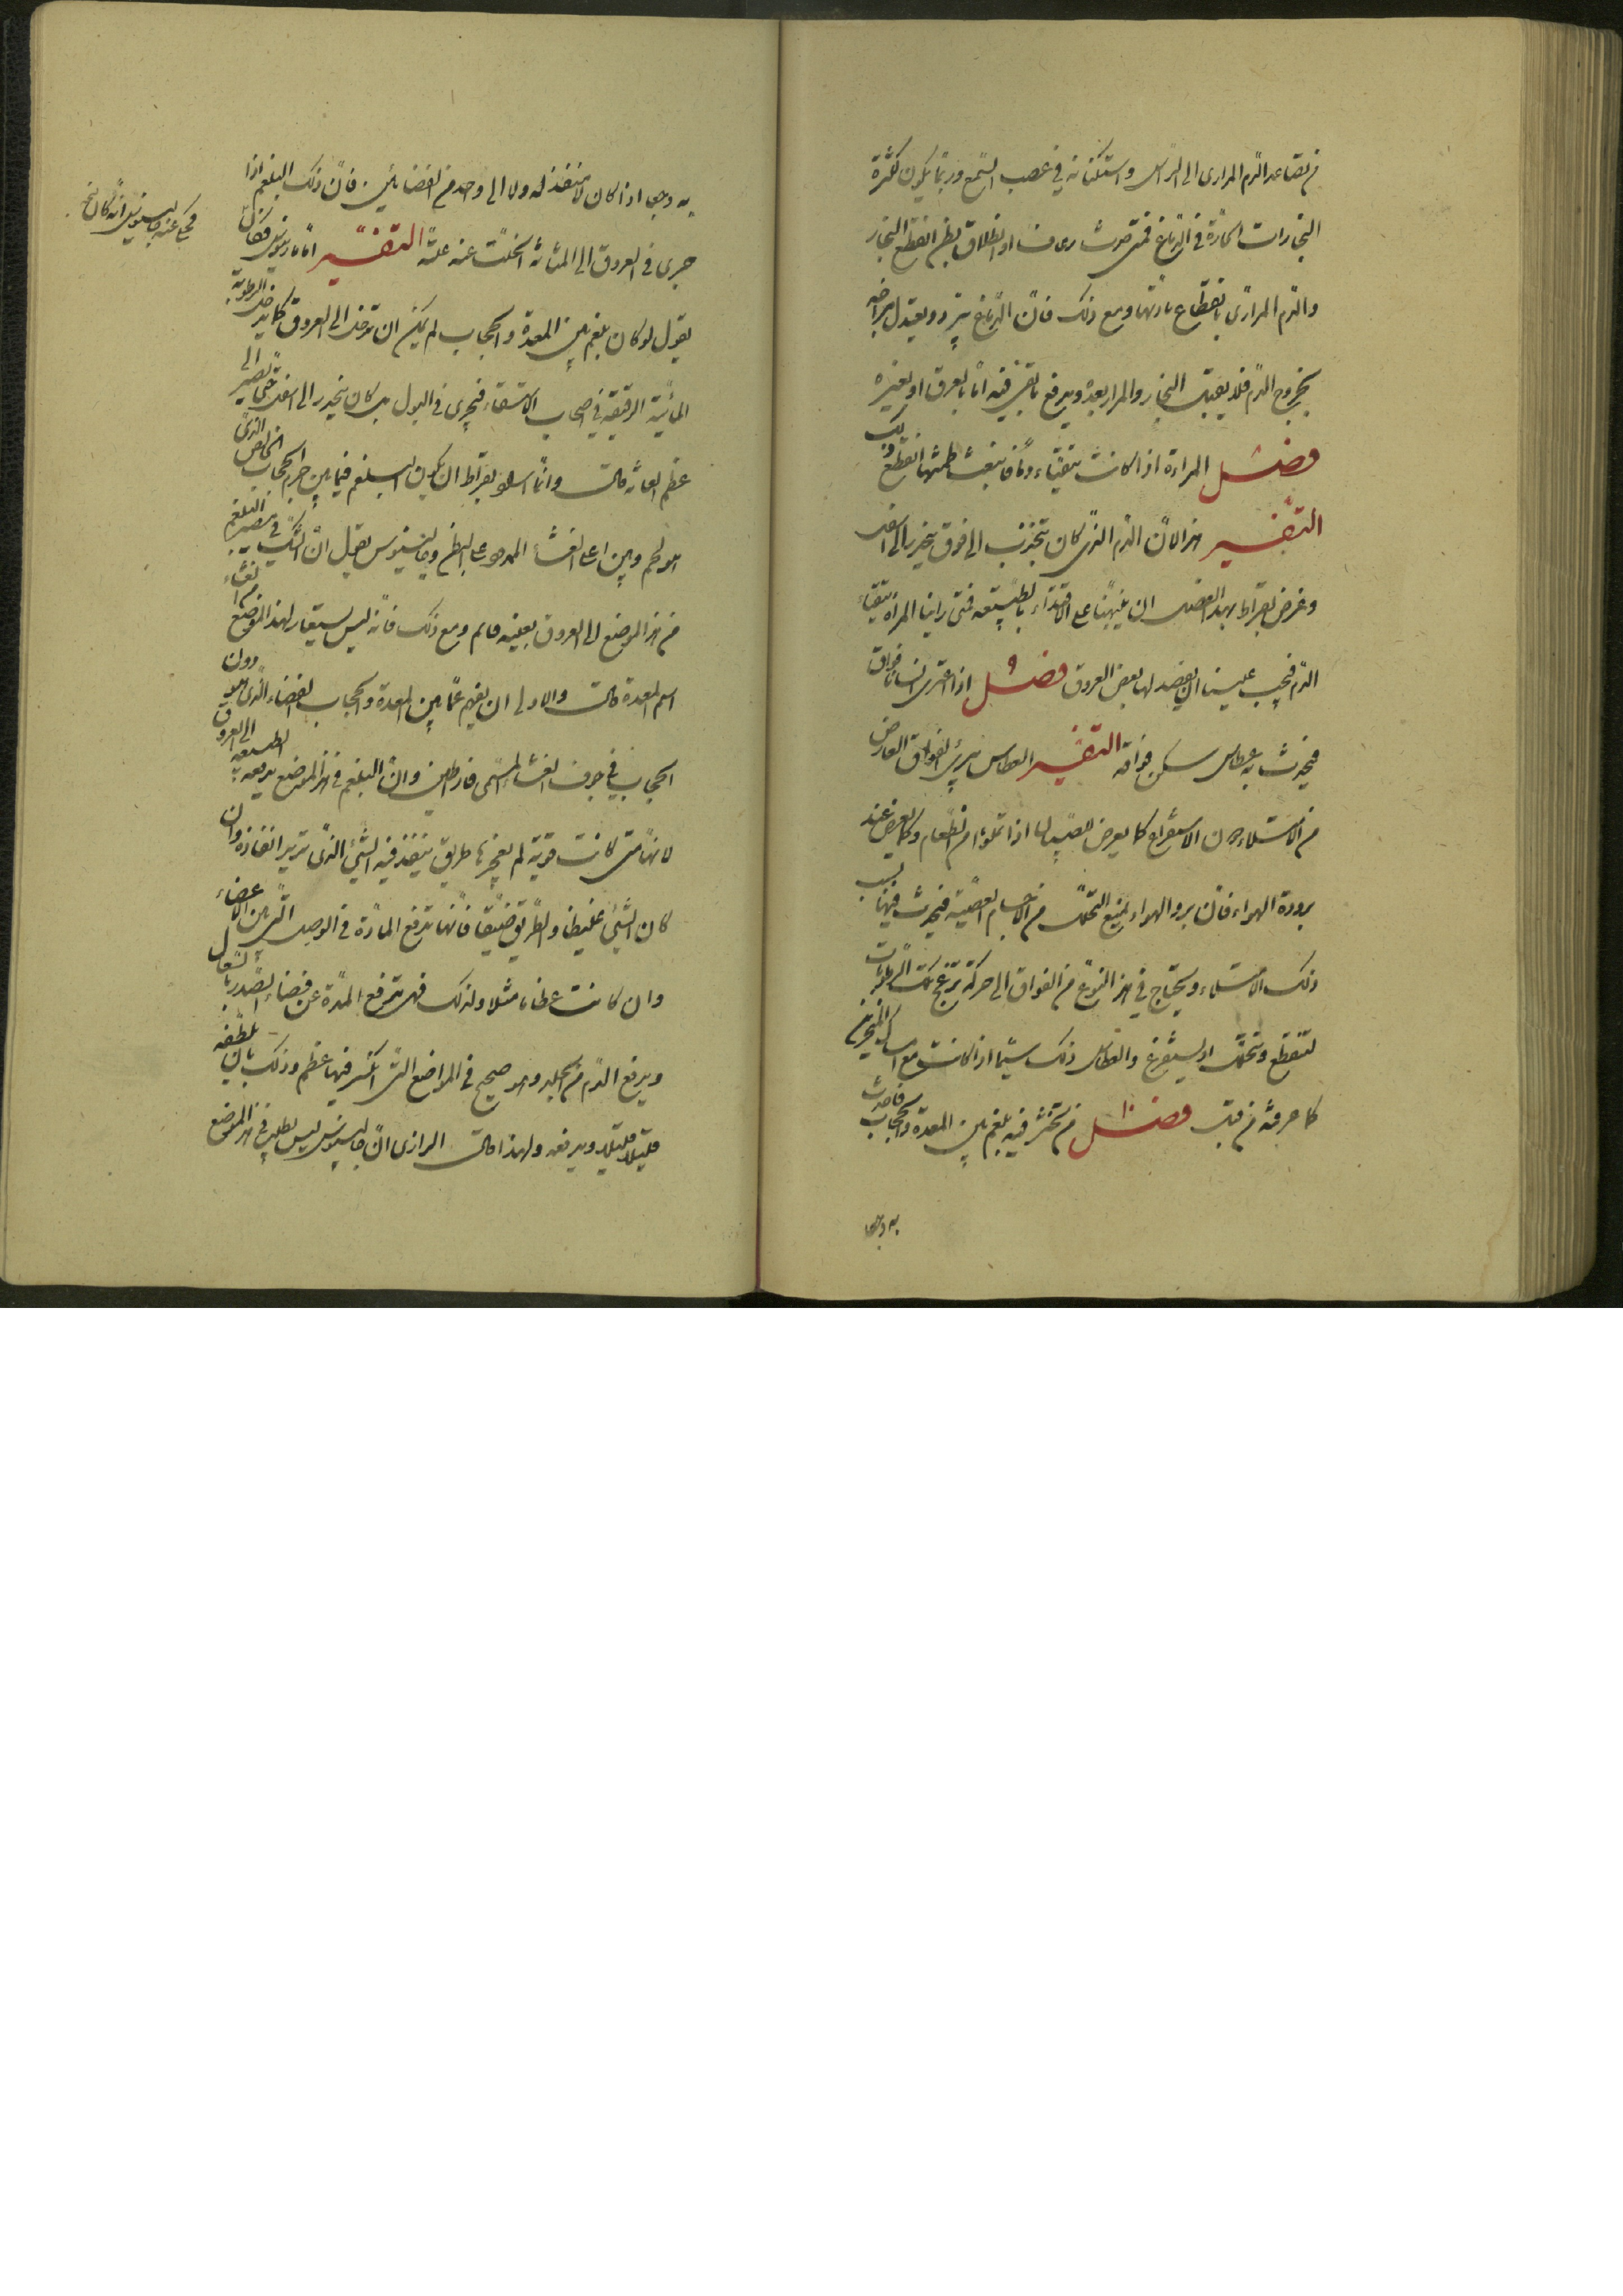 من تصاعد الدم المرارى الى الراس واستكنانه فى عصب السمع وربما يكون لكثرة
البخارات الحارة فى الدماغ فمتى حدث رعاف او انطلاق بطن انقطع البخار
والدم المرارى بانقطاع مادتها ومع ذلك فان الدماغ يبرد ويعتدل مزاجه
بخروج الدم فلا يقبل البخار والمرار بعد ويدفع ما بقى فيه اما بالعرق او بغيره
فصل المراءة اذا كانت تتقياء دما فانبعث طمثها انقطع ذلك
التفسير هذا لان الدم الذى كان ينجذب الى فوق ينحدر الى اسفل
وغرض بقراط بهذا الفصل ان ينبهنا على الاقتداء بالطبيعه فمتى راينا المراة تتقياء
الدم فيجب علينا ان يفصد لها بعض العروق فصل اذا اعترى انسانا فواق
فيحدث به عطاس سكن فواقه التفسير العطاس يبرئ الفواق العارض
من الامتلاء دون الاستفراغ كما يعرض للصبيان اذا تملوا من الطعام وكما يعرض عند
برودة الهواء فان برد الهواء يمنع التحلل من الاجسام العصبية فيحدث فيها بسبب
ذلك الامتلاء ويحتاج فى هذا النوع من الفواق الى حركة تزعج تلك الرطوبات
لتنقطع وتتحلل او يستفرغ والعطاس ذلك سيما اذا كانت مع امساك المنخرين
كما عرفته من قبل فصل من تختثر فيه بلغم بين المعدة والحجاب فاحدث
به وجعا
به وجعا اذا كان لا منفذ له ولا الى واحد من الفضائين فان ذلك البلغم اذا
جرى فى العروق الى المثانة انحلت عنه علته التفسير اما مارينوس فقال
يقول لو كان بلغم بين المعدة والحجاب لم يمكن ان تدخل الى العروق كما يدخل الرطوبة
المائية الرقيقة فى اصحاب الاستسقاء فيجرى فى البول بل كان ينحدر الى اسفل حتى تصير الى
عظم العانه قالت وانما اسلو بقراط ان يكون البلغم فيما بين جرم الحجاب الخاص الذى
هو لحم وبين اعلى الغشاء الممدود على البطن وجالينوس يقول ان الشك فى مصير البلغم
من هذا الموضع الى العروق بعينه قائم ومع ذلك فانه ليس يستعار لهذا الموضع من الغشاء
اسم المعدة قالت والاولى ان يفهم عما بين المعدة والحجاب الفضاء الذى هو دون
الحجاب فى جوف الغشاء المسمى فارطاين وان البلغم فى هذا الموضع يدفعه الطبيعة الى العروق
لانها متى كانت قوية لم يعجزها طريق ينفذ فيه الشئ الذى تريد انفاذه وان
كان الشئ غليظا والطريق ضيقا فانها تدفع المادة فى الوصل التى بين الاعضاء
وان كانت عظاما مثلا ولذلك فهى تدفع المدة عن فضاء الصدر بالسعال
ويدفع الدم من الجلد وهو صحيح فى المواضع التى انكسر فيها عظم وذلك بان يلطفه
قليلا قليلا ويدفعه ولهذا قالت الرازى ان جالينوس ليس يطلب فى هذا الموضع
فحكى عنه جالينوس انه كان